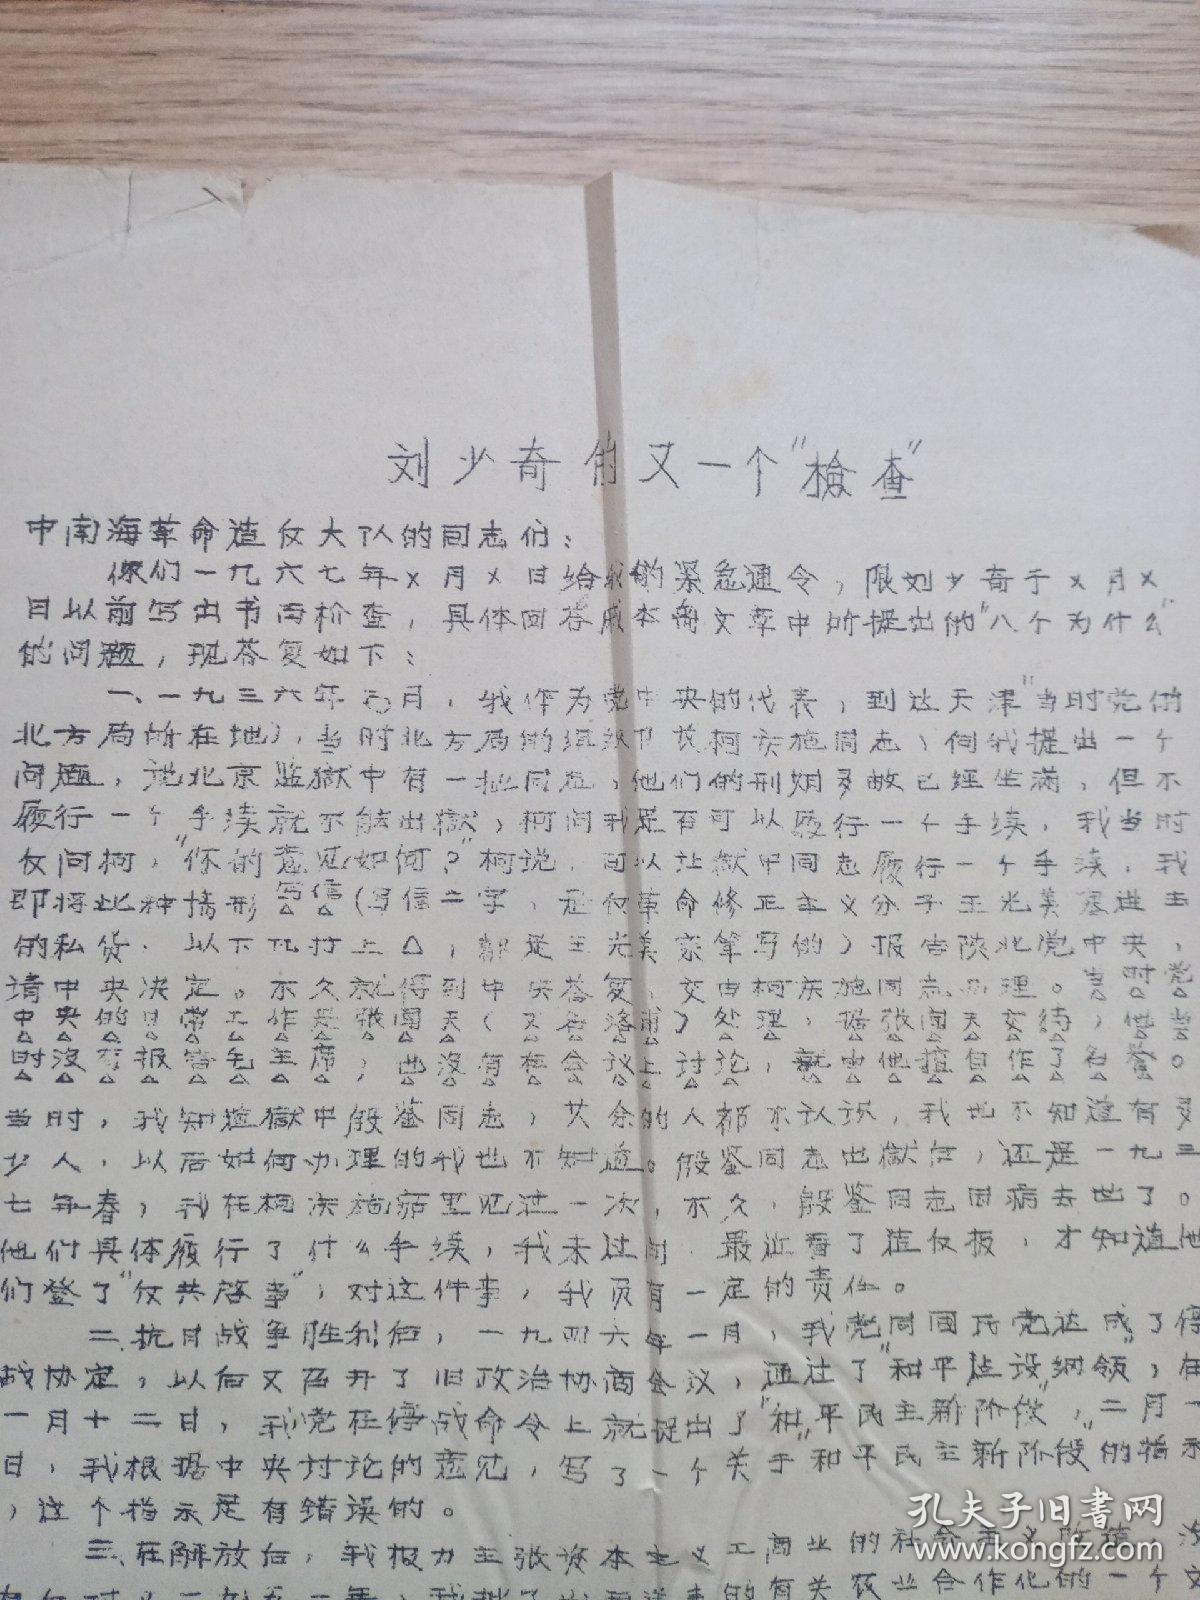 刘少奇的又一个"檢查"
中南海革命造仅大队的同志们：
你们一九六七年×月×日给我的紧急通令，限刘少奇于×月×
日以前写出书面检查，具体回答戚本禹文章中所提出的"八个为什么"
的问题，现答复如下：
一、一九三六年三月，我作为党中央的代表，到达天津"当时党的
北方局所在地），当时北方局的组织部长柯庆施同志，向我提出一个
问题，说北京监獄中有一批同志，他们的刑期多数已经坐满，但不
履行一个手续就不能出獄，柯问我是否可以履行一个手续，我当时
仅问柯，"你的意见如何？"柯说，可以让獄中同志履行一个手续，我
即将此种情形写信（写信二字，是仅革命修正主义分子王光美塞进去
的私货．以下凡打上△，都是王光美亲筆写的）报告陕北党中央，
请中央决定。不久就得到中央答复，交由柯庆施同志办理。当时党
中央的日常工作是张闻天（又名洛甫）处理，据张闻天交待，他当
时沒有报告毛主席，也沒有在会议上讨论，就由他擅自作了答复。
当时，我知道獄中殷鉴同志，其余的人都不认识，我也不知道有多
少人，以后如何办理的我也不知道。殷鉴同志出獄后，还是一九三
七年春，我在柯庆施那里见过一次，不久，殷鉴同志因病去世了。
他们具体履行了什么手续，我未过问．最近看了造仅报，才知道他
们登了"仅共啓事"，对这件事，我员有一定的责任。
二、抗日战争胜利后，一九四六年一月，我党同國民党达成了停
战协定，以后又召开了旧政治协商会议，通过了"和平建设纲领"，在
一月十二日，我党在停战命令上就提出了"和平民主新阶段"，二月一
日，我根据中央讨论的意见，写了一个关于"和平民主新阶段"的指示
，这个指示是有错误的。
三、在解放后，我极力主张资本主义工商业的社会主义改造，
的有关农业合作化的一个文
孔夫子旧書网
www.kongfz.com